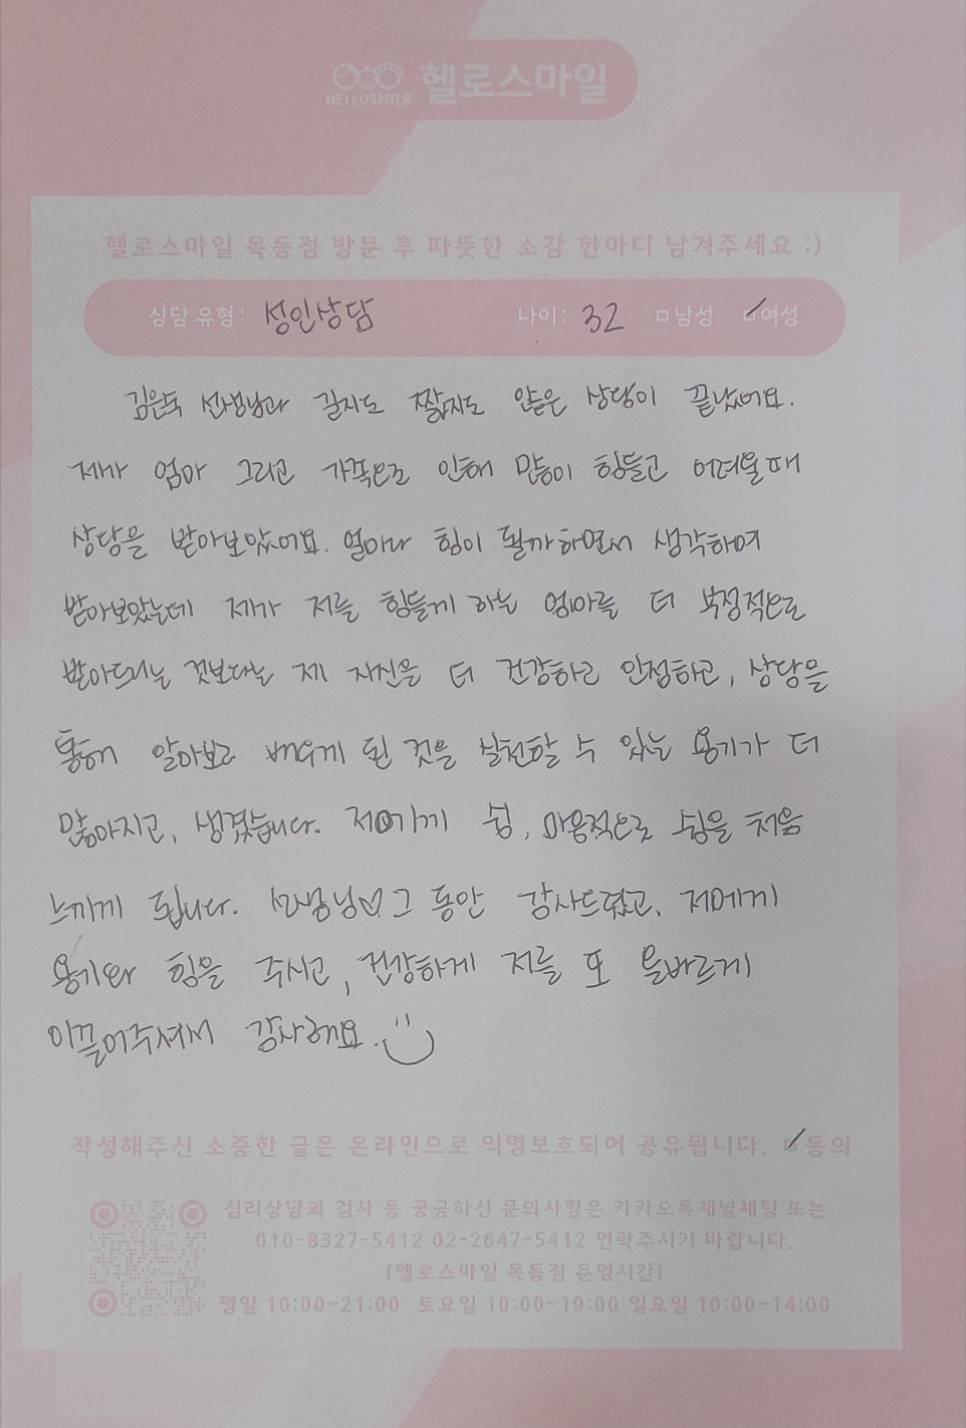 HELLOSMILE 헬로스마일
헬로스마일 목동점 방문 후 따뜻한 소감 한마디 남겨주세요 :)
상담 유형: 성인상담 나이: 32 □남성 ☑여성
김은숙 선생님과 길지도 짧지도 않은 상담이 끝났어요.
제가 엄마 그리고 가족으로 인해 많이 힘들고 어려울때
상담을 받아보았어요. 얼마나 힘이 될까하면서 생각하며
받아보았는데 제가 저를 힘들게 하는 엄마를 더 부정적으로
받아드리는 것보다는 제 자신을 더 건강하고 안정하고, 상담을
통해 알아보고 배우게 된 것을 실천할 수 있는 용기가 더
많아지고, 생겼습니다. 저에게 쉼, 마음적으로 쉼을 처음
느끼게 됩니다. 선생님♡ 그 동안 감사드렸고, 저에게
용기와 힘을 주시고, 건강하게 저를 또 올바르게
이끌어주셔서 감사해요.
작성해주신 소중한 글은 온라인으로 익명보호되어 공유됩니다. ☑동의
심리상담과 검사 등 궁금하신 문의사항은 카카오톡채널채팅 또는
010-8327-5412 02-2647-5412 연락주시기 바랍니다.
[헬로스마일 목동점 운영시간]
평일 10:00~21:00 토요일 10:00~19:00 일요일 10:00~14:00